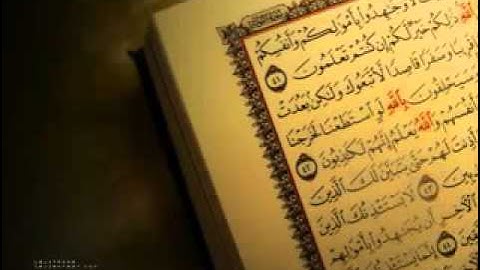 وَجَٰهِدُوا۟ بِأَمْوَٰلِكُمْ وَأَنفُسِكُمْ
ٱللَّهِ ذَٰلِكُمْ خَيْرٌ لَّكُمْ إِن كُنتُمْ تَعْلَمُونَ ٤١
قَرِيبًا وَسَفَرًا قَاصِدًا لَّٱتَّبَعُوكَ وَلَٰكِنۢ بَعُدَتْ
وَسَيَحْلِفُونَ بِٱللَّهِ لَوِ ٱسْتَطَعْنَا لَخَرَجْنَا
أَنفُسَهُمْ وَٱللَّهُ يَعْلَمُ إِنَّهُمْ لَكَٰذِبُونَ ٤٢
أَذِنتَ لَهُمْ حَتَّىٰ يَتَبَيَّنَ لَكَ ٱلَّذِينَ
٤٣ لَا يَسْتَـْٔذِنُكَ ٱلَّذِينَ
ٱلْءَاخِرِ أَن يُجَٰهِدُوا۟ بِأَمْوَٰلِهِمْ
٤٤ إِنَّمَا